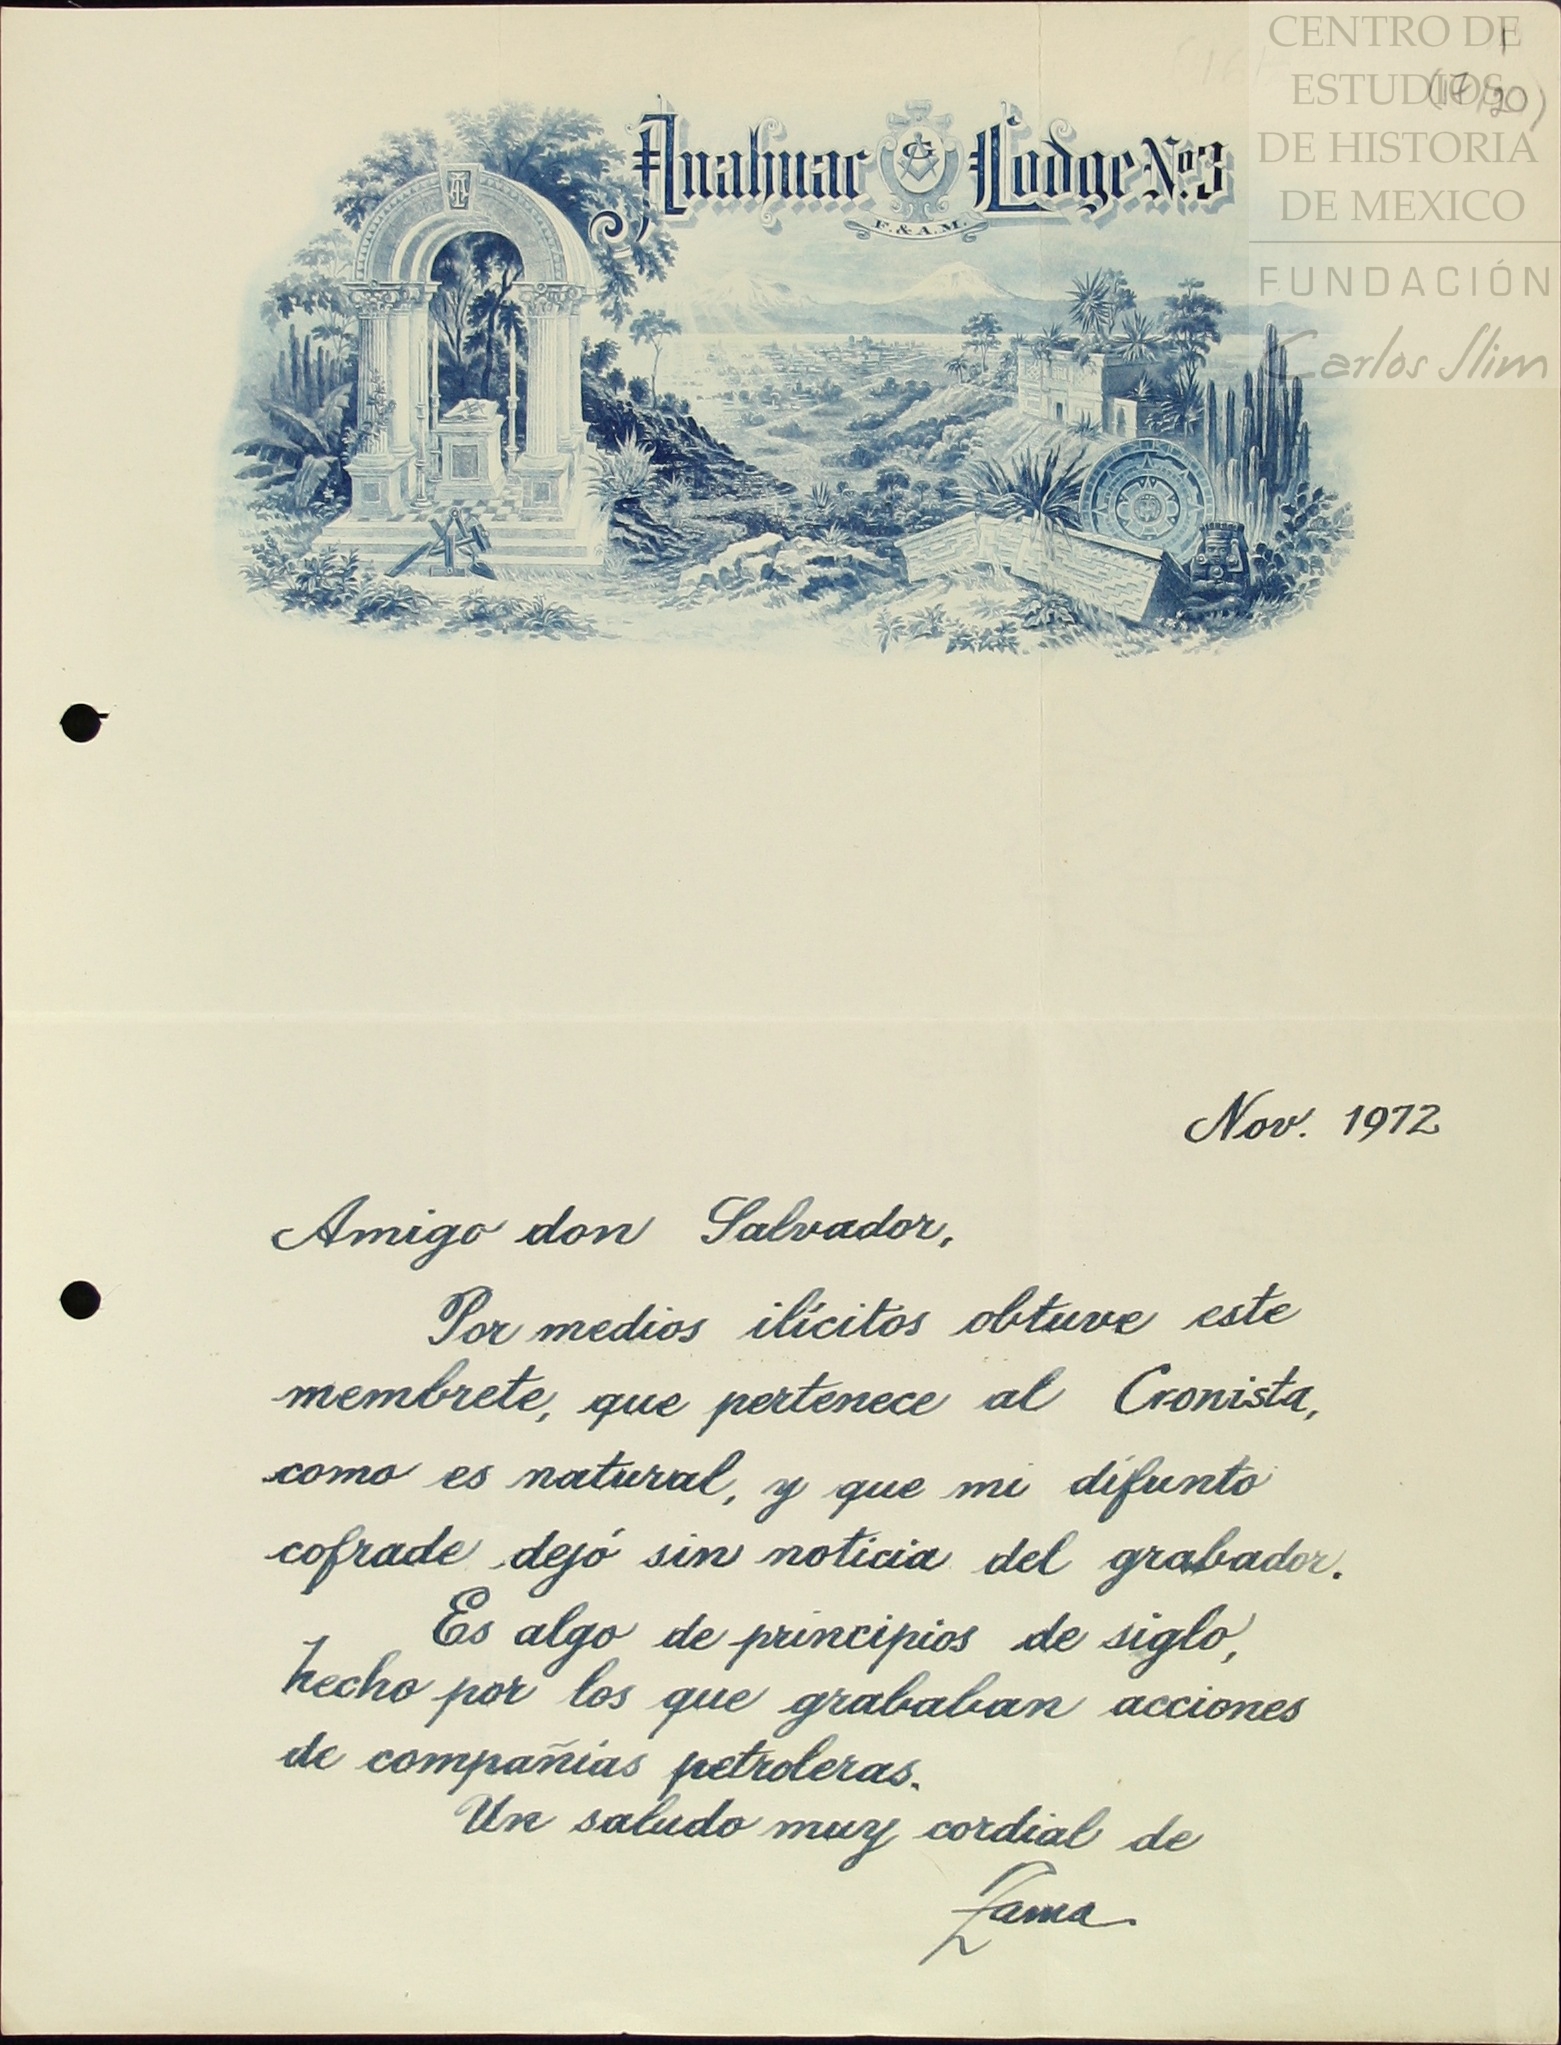 CENTRO DE
ESTUDIOS
DE HISTORIA
DE MEXICO
FUNDACIÓN
Carlos Slim
Anahuac Lodge No. 3
G
F. & A. M.
Nov. 1972
Amigo don Salvador,
Por medios ilícitos obtuve este
membrete, que pertenece al Cronista,
como es natural, y que mi difunto
cofrade dejó sin noticia del grabador.
Es algo de principios de siglo,
hecho por los que grababan acciones
de compañías petroleras.
Un saludo muy cordial de
Zama.